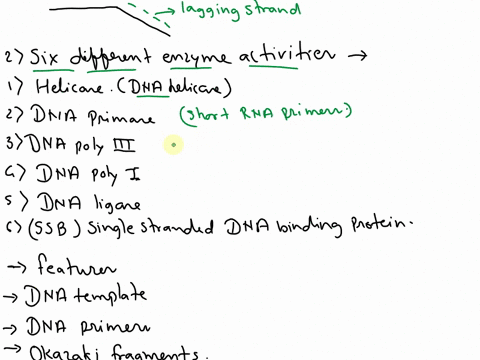 → lagging strand
2) Six different enzyme activities →
1) Helicase. (DNA helicase)
2) DNA primase (short RNA primers.)
3) DNA poly III
4) DNA poly I
5) DNA ligase
6) (SSB) Single stranded DNA binding protein.
→ features
→ DNA template
→ DNA primers
→ Okazaki fragments.